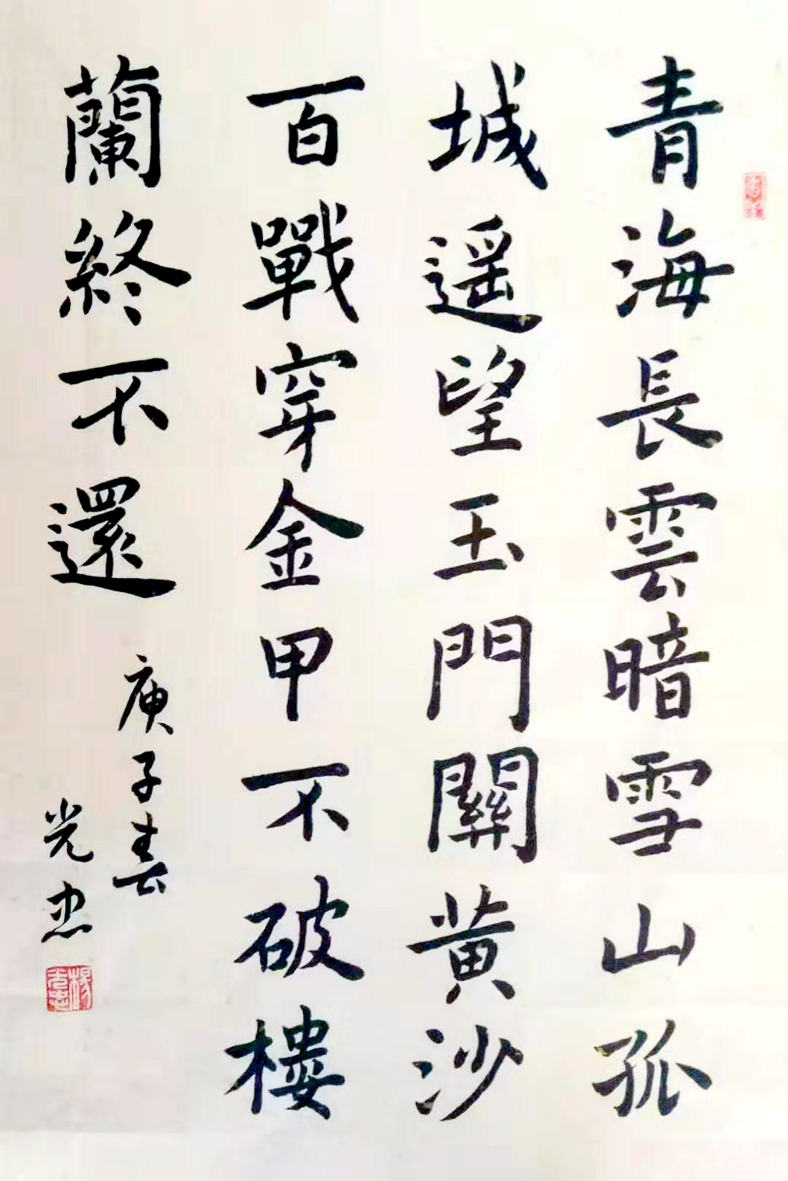 青海長雲暗雪山孤
城遥望玉門關黄沙
百戰穿金甲不破樓
蘭終不還
庚子春
光忠
楊光忠